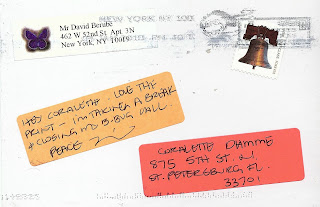 Mr David Berube
462 W 52nd St. Apt. 3N
New York, NY 10019
NEW YORK NY 100
HEY CORALETTE. LOVE THE
PRINT. I'M TAKING A BREAK
& CLOSING MD B. BUG WALL.
PEACE
CORALETTE DAMME
875 5TH ST. N.
ST. PETERSBURG, FL.
33701